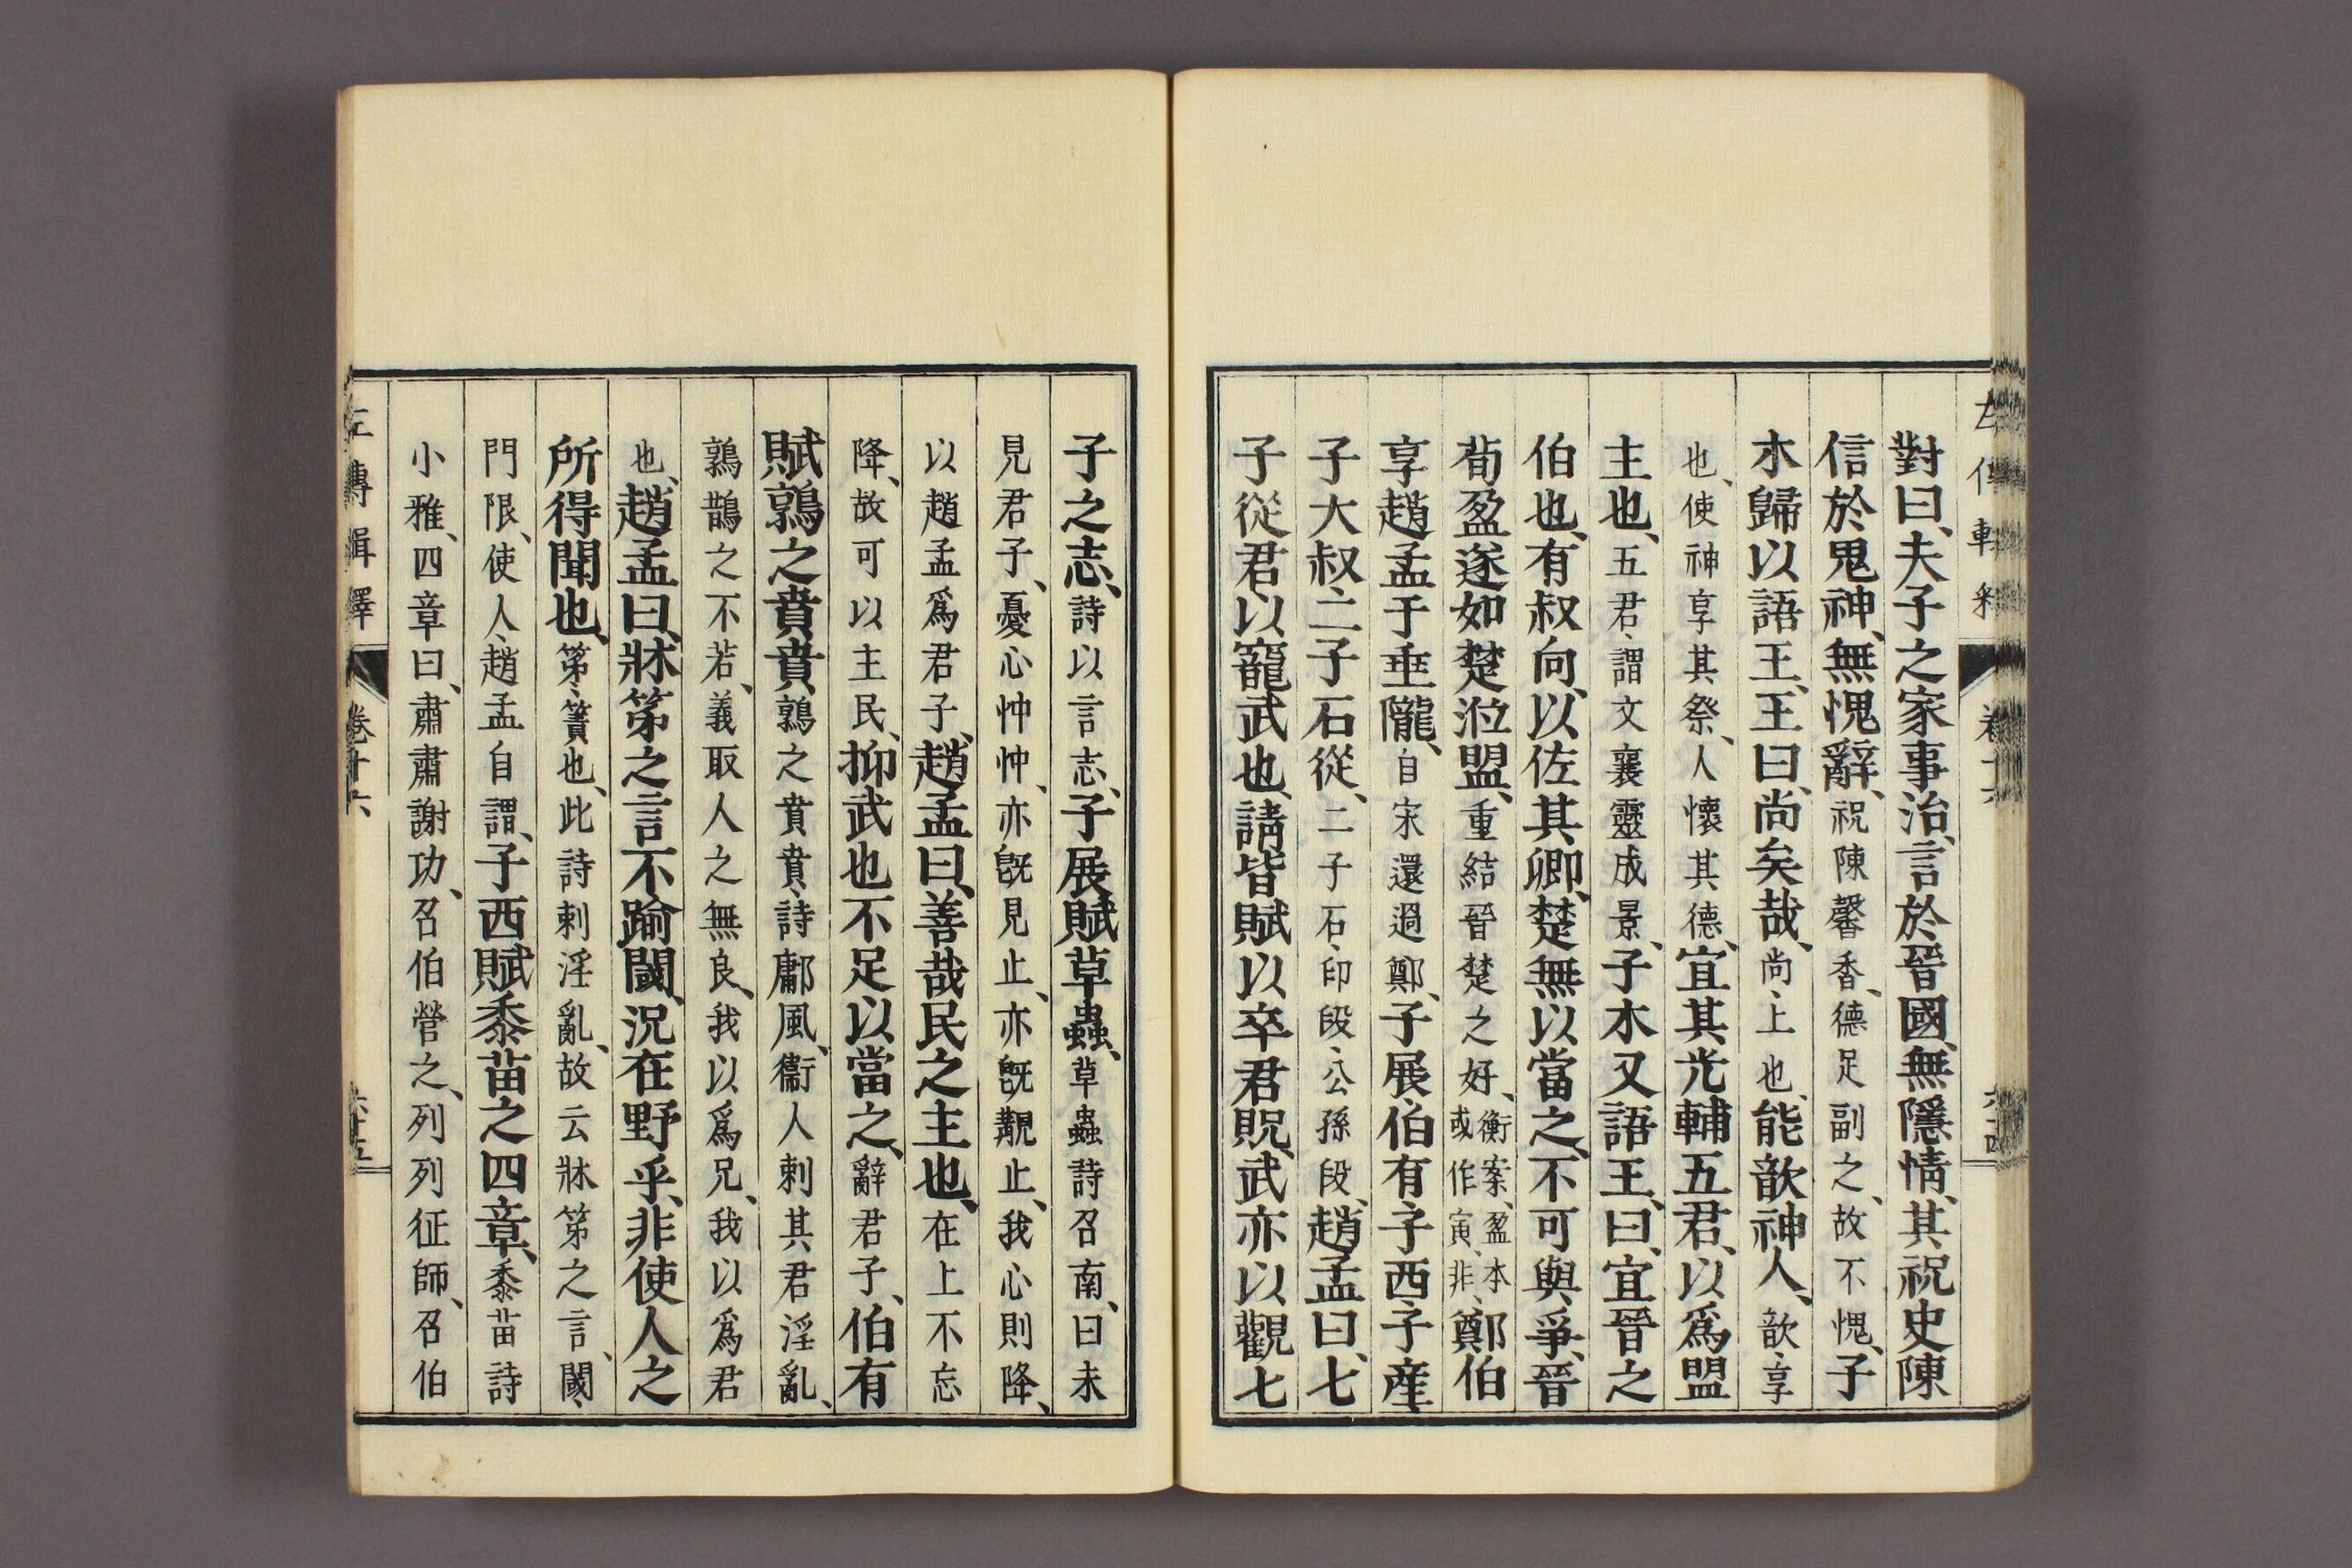 對曰、夫子之家事治、言於晉國、無隱情、其祝史陳
信於鬼神、無愧辭、祝陳馨香、德足副之、故不愧、子
木歸以語王、王曰、尚矣哉、尚、上也、能歆神人、歆、享
也、使神享其祭、人懷其德、宜其光輔五君、以爲盟
主也、五君、謂文襄靈成景、子木又語王、曰、宜晉之
伯也、有叔向、以佐其卿、楚無以當之、不可與爭、晉
荀盈遂如楚涖盟、重結晉楚之好、衡案、盈本或作寅、非、鄭伯
享趙孟于垂隴、自宋還過鄭、子展、伯有、子西、子產、
子大叔、二子石從、二子石、印段、公孫段、趙孟曰、七
子從君、以寵武也、請皆賦以卒君貺、武亦以觀七
子之志、詩以言志、子展賦草蟲、草蟲詩召南、曰未
見君子、憂心忡忡、亦旣見止、亦旣覯止、我心則降、
以趙孟爲君子、趙孟曰、善哉民之主也、在上不忘
降、故可以主民、抑武也不足以當之、辭君子、伯有
賦鶉之賁賁、鶉之賁賁、詩鄘風、衞人刺其君淫亂、
鶉鵲之不若、義取人之無良、我以爲兄、我以爲君
也、趙孟曰、牀笫之言不踰閾、況在野乎、非使人之
所得聞也、笫、簀也、此詩刺淫亂、故云牀笫之言、閾、
門限、使人、趙孟自謂、子西賦黍苗之四章、黍苗詩
小雅、四章曰、肅肅謝功、召伯營之、列列征師、召伯
左傳輯釋 卷十六 六十五